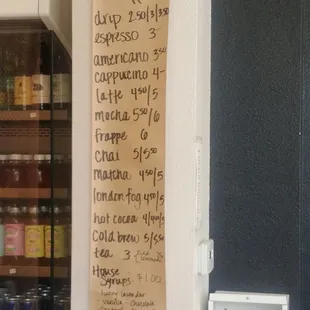 drip 2.50/3/3.50
espresso 3-
americano 3.50
cappucino 4-
latte 4.50/5
mocha 5.50/6
frappe 6
chai 5/5.50
matcha 4.50/5
london fog 4.50/5
hot cocoa
cold brew 5/5.50
tea 3
House
Syrups $1.00
honey lavender
vanilla - chocolate